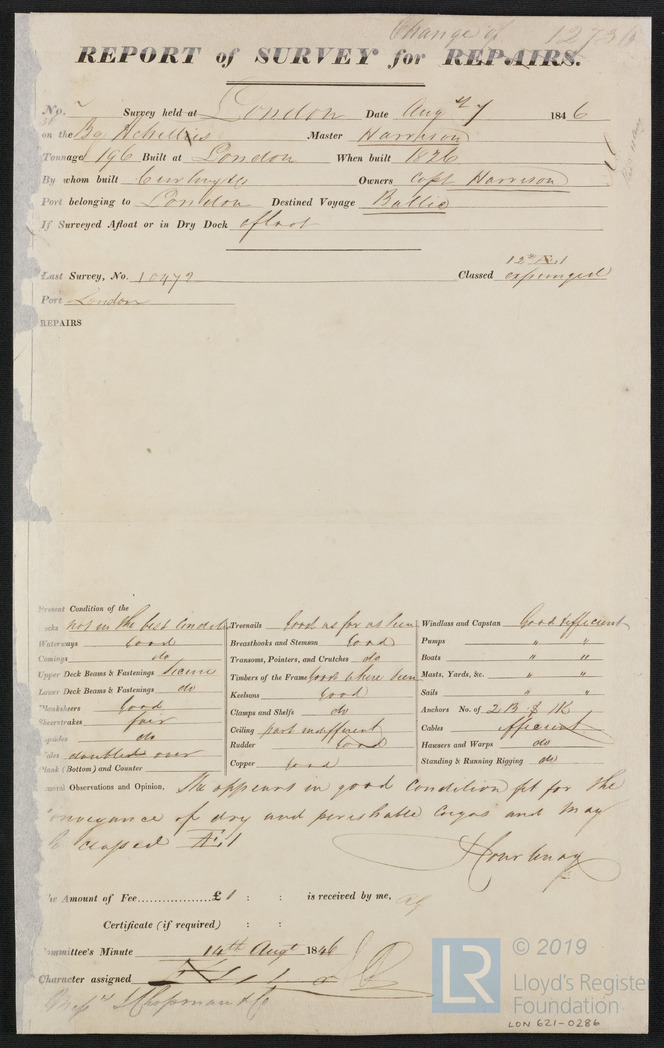 Change of 12736
REPORT of SURVEY for REPAIRS.
No. Survey held at London Date Augt 7 1846
on the Bg Achilles Master Harrison
Tonnage 196 Built at London When built 1826
By whom built Owners Capt Harrison
Port belonging to London Destined Voyage Baltic
If Surveyed Afloat or in Dry Dock afloat
Last Survey, No. 10472 Classed expunged
Port London
REPAIRS
Present Condition of the
not in the best condition Treenails Good as far as seen Windlass and Capstan Good & efficient
Waterways Good Breasthooks and Stemson Good Pumps " "
Comings do Transoms, Pointers, and Crutches do Boats " "
Upper Deck Beams & Fastenings Timbers of the Frame Good where seen Masts, Yards, &c. " "
Lower Deck Beams & Fastenings do Keelsons Good Sails " "
Planksheers Good Clamps and Shelfs do Anchors No. of 2 B & 1K
Sheerstrakes fair Ceiling part indifferent Cables efficient
Topsides do Rudder Good Hausers and Warps do
Wales doubled over Copper Good Standing & Running Rigging do
Plank (Bottom) and Counter
General Observations and Opinion, She appears in good condition fit for the
conveyance of dry and perishable Cargos and May
be classed Æ1
The Amount of Fee.................. £ 1 : : is received by me,
Certificate (if required) : :
Committee's Minute 14th Augt 1846
Character assigned
Messrs Chapman & Co
LR © 2019
Lloyd's Register
Foundation
LON 621-0286